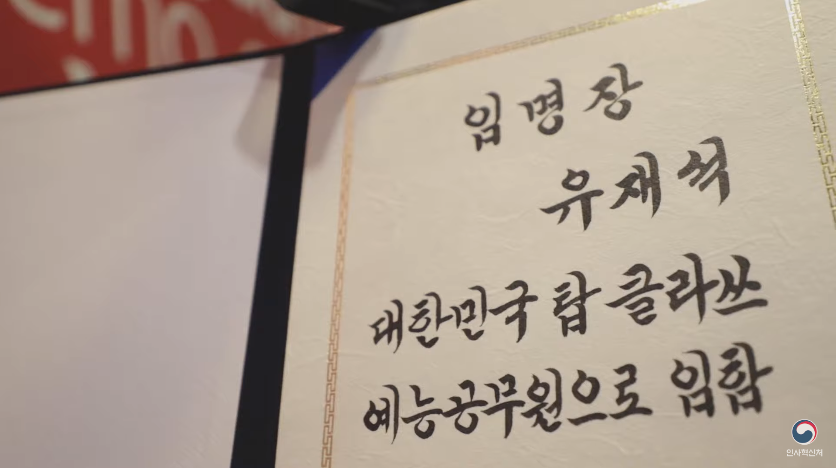 임명장
유재석
대한민국 탑 클라쓰
예능공무원으로 임함
인사혁신처